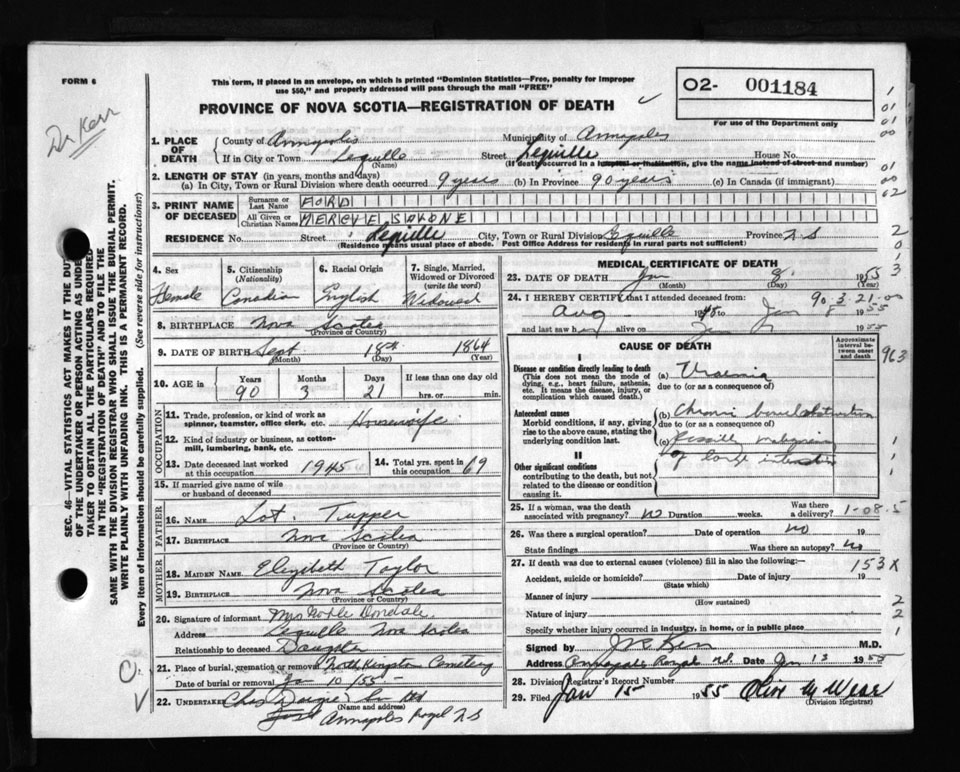 FORM 6
This form, if placed in an envelope, on which is printed "Dominion Statistics—Free, penalty for improper
use $50," and properly addressed will pass through the mail "FREE"
PROVINCE OF NOVA SCOTIA—REGISTRATION OF DEATH
O2- 001184
For use of the Department only
Dr Kerr
1. PLACE OF DEATH
County of Annapolis Municipality of Annapolis
If in City or Town Lequille (Name) Street Lequille House No.
(If death occurred in a hospital or institution, give the name instead of street and number)
2. LENGTH OF STAY (in years, months and days)
(a) In City, Town or Rural Division where death occurred 9 years (b) In Province 90 years (c) In Canada (if immigrant)
3. PRINT NAME OF DECEASED
Surname or Last Name FORD
All Given or Christian Names
RESIDENCE No. Street Lequille City, Town or Rural Division Lequille Province N S
(Residence means usual place of abode. Post Office Address for residents in rural parts not sufficient)
4. Sex Female
5. Citizenship (Nationality) Canadian
6. Racial Origin English
7. Single, Married, Widowed or Divorced (write the word) Widowed
8. BIRTHPLACE Nova Scotia
(Province or Country)
9. DATE OF BIRTH Sept 18th 1864
(Month) (Day) (Year)
10. AGE in Years 90 Months 3 Days 21 If less than one day old hrs. or min.
OCCUPATION
11. Trade, profession, or kind of work as spinner, teamster, office clerk, etc. Housewife
12. Kind of industry or business, as cotton-mill, lumbering, bank, etc.
13. Date deceased last worked at this occupation 1945
14. Total yrs. spent in this occupation 69
15. If married give name of wife or husband of deceased
FATHER
16. NAME Lot Tupper
17. BIRTHPLACE Nova Scotia
(Province or Country)
MOTHER
18. MAIDEN NAME Elizabeth Taylor
19. BIRTHPLACE Nova Scotia
(Province or Country)
20. Signature of informant Mrs Dondale
Address Lequille Nova Scotia
Relationship to deceased Daughter
21. Place of burial, cremation or removal North Kingston Cemetery
Date of burial or removal Jan 10/55
22. UNDERTAKER Chas
(Name and address)
Annapolis Royal N S
MEDICAL CERTIFICATE OF DEATH
23. DATE OF DEATH Jan 8 1955
(Month) (Day)
90 3-21-00
24. I HEREBY CERTIFY that I attended deceased from:
Aug 1948 to Jan 8 1955
and last saw her alive on Jan 1955
CAUSE OF DEATH
Approximate interval between onset and death
963
I
Disease or condition directly leading to death
(This does not mean the mode of dying, e.g., heart failure, asthenia, etc. It means the disease, injury, or complication which caused death.)
(a) Uraemia
due to (or as a consequence of)
Antecedent causes
Morbid conditions, if any, giving rise to the above cause, stating the underlying condition last.
(b) Chronic bowel obstruction
due to (or as a consequence of)
(c) Possibly malignancy
of large intestine
II
Other significant conditions
contributing to the death, but not related to the disease or condition causing it.
25. If a woman, was the death associated with pregnancy? No Duration weeks. Was there a delivery?
1-08-5
26. Was there a surgical operation? No Date of operation 19
State findings Was there an autopsy? No
27. If death was due to external causes (violence) fill in also the following:—
153X
Accident, suicide or homicide? Date of injury 19
(State which)
Manner of injury
(How sustained)
Nature of injury
Specify whether injury occurred in industry, in home, or in public place
Signed by Kerr M.D.
Address Annapolis Royal N.S. Date Jan 13 1955
28. Division Registrar's Record Number
29. Filed Jan 15 1955 Olive M Wear
(Division Registrar)
SEC. 46—VITAL STATISTICS ACT MAKES IT THE DUTY
OF THE UNDERTAKER OR PERSON ACTING AS UNDERTAKER
TO OBTAIN ALL THE PARTICULARS REQUIRED
IN THE "REGISTRATION OF DEATH" AND TO FILE THE
SAME WITH THE DIVISION REGISTRAR WHO SHALL ISSUE THE BURIAL PERMIT.
WRITE PLAINLY WITH UNFADING INK. THIS IS A PERMANENT RECORD.
Every item of information should be carefully supplied. (See reverse side for instructions)